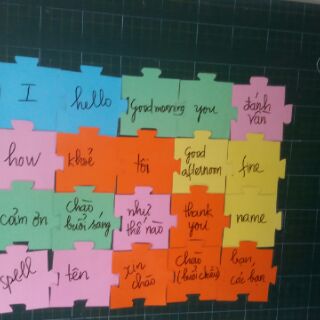 I hello Good morning you đánh
vần
how khoẻ tôi Good
afternoon fine
cảm ơn chào
buổi sáng như
thế nào thank
you name
spell tên xin
chào chào
(buổi chiều) bạn,
các bạn